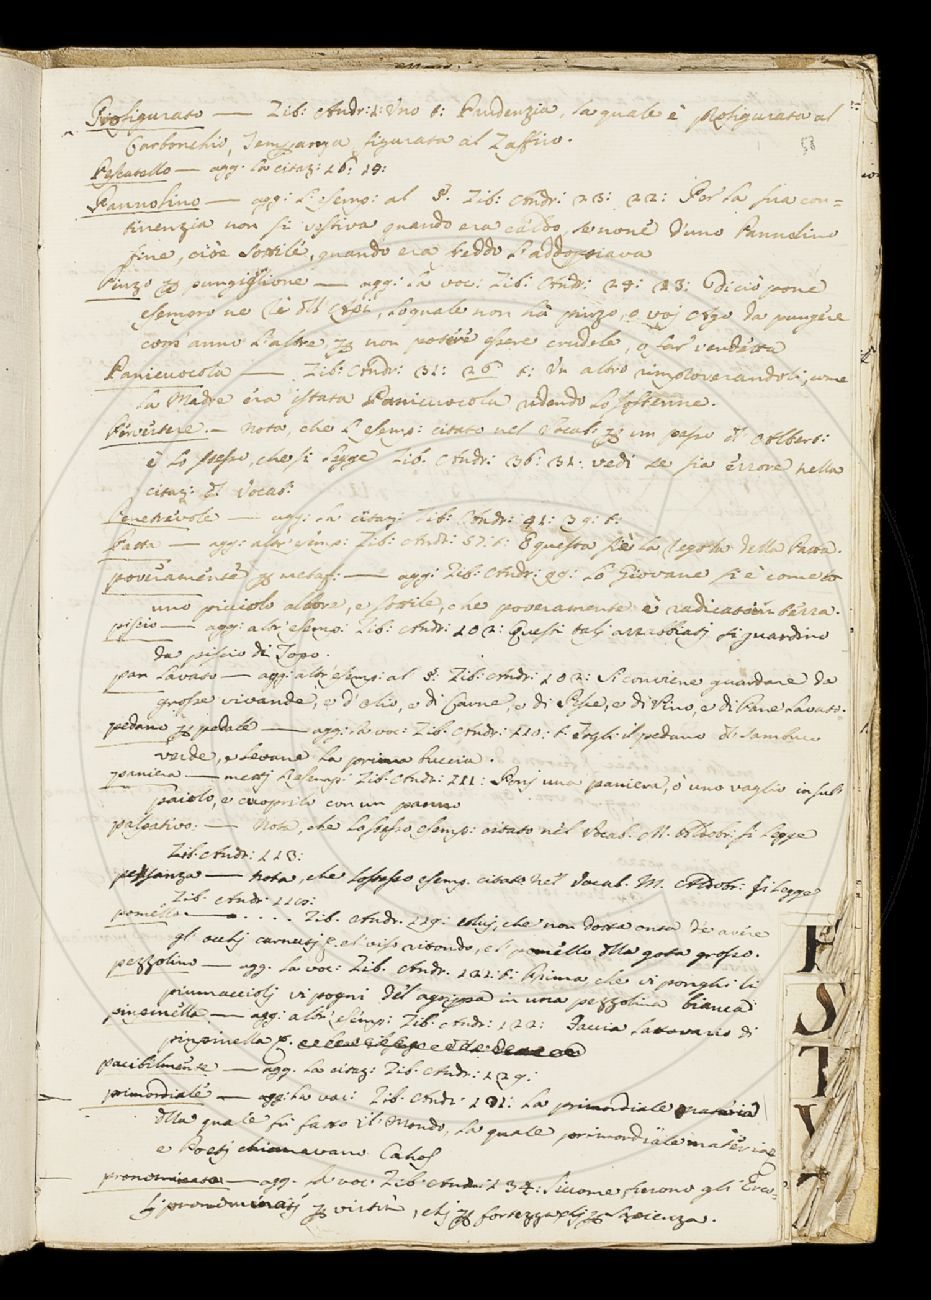 Profigurato — Lib: Andr: 1: Uno t: Prudenzia, la quale è profigurata al
58
Carbonchio, Temperanza figurata al Zaffiro.
Pescatello — agg: la citaz: 16: 19:
Pannolino — agg: l'esemp: al §. Lib: Andr: 23: 22: Per la sua con=
tinenzia non si vestiva quando era caldo, se nonè d'uno Pannolino
fine, cioè sottile, quando era freddo l'addoppiava
Pinzo pungiglione — agg: la voc: Lib: Andr: 24: 23: Di ciò pone
esempro ne lo quale non hà pinzo, o voi Orgo da pungere
com' anno l'altre non potere essere crudele, o far vendetta
Panicuocola — Lib: Andr: 31: 26 t: Un altro rimproverandoli, come
la Madre era stata Panicuocola ridendo lo sostenne.
Pervertere. — Nota, che l'esemp: citato nel Vocab: un passo d' Albert:
è lo stesso, che si legge Lib. Andr: 36: 31: vedi se sia errore nella
citaz: d. Vocab:
Penetrevole — agg: la citaz: Lib: Andr: 41: 39: t:
Patta — agg: altr'esemp: Lib: Andr: 57: t: E questa si è la regola della Patta.
poveramente metaf: — agg: Lib: Andr: 99: Lo Giovane si è come
uno picciolo albore, e sottile, che poveramente è radicato in terra.
piscio — agg: altr'esemp: Lib: Andr: 102: Questi tali arrabbiati si guardino
da piscio di Topo.
pan lavato — agg: altr'esemp: al §. Lib: Andr: 102: Si conviene guardare da
grosse vivande, e d'olio, e di Carne, e di Pesce, e di Vino, e di Pane lavato.
pedano pedale — agg: la voc: Lib: Andr: 110: t: Togli il pedano di Sambuco
verde, e levane la prima buccia.
paniera — metti l'esemp: Lib: Andr: 111: Poni una paniera, o uno vaglio in sul
paiolo, e cuoprilo con un panno
palpativo: — Nota, che lo stesso esemp: citato nel Vocab. M. Aldobr: si legge
Lib: Andr: 113:
pessanza — Nota, che lo stesso esemp. citato nel Vocab. M. Aldobr: si legge
Lib: Andr: 110:
pomello — . . . . Lib. Andr: 119: che non dotta onta dè avere
gl' occhj carnuti, el viso ritondo, el pomello della gota grosso.
pezzolina — agg. la voc: Lib. Andr: 121: t: Prima che vi ponghi li
piumaccioli vi pogni del agrippa in una pezzolina bianca
pinpinella — agg: altr'esemp: Lib: Andr: 122: Faccia lattovario di
pinpinella
pacibilmente — agg. la citaz: Lib: Andr: 129:
primordiale — agg: la voc: Lib: Andr: 131: La primordiale materia
della quale fù fatto il Mondo, la quale primordiale materia
e Poeti chiamavano Cahos
pronominato — agg. la voc: Lib: Andr: 134: Siccome furono gli Erco=
li pronominati virtù, e fortezza Sapienza.
P
S
T
V
Z